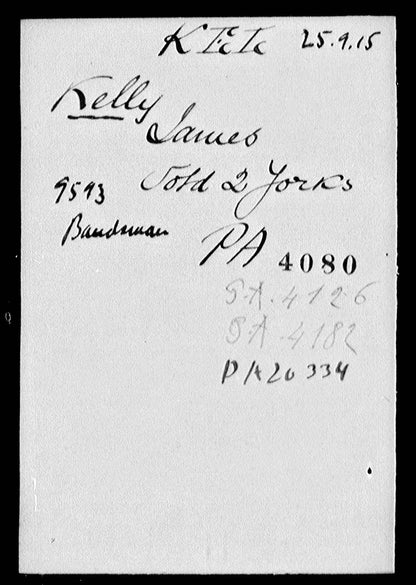 K E. I. 25.9.15
Kelly
James
9593 Sold 2 Yorks
Bandsman
PA 4080
P.A. 4126
P.A. 4182
PA 20 334